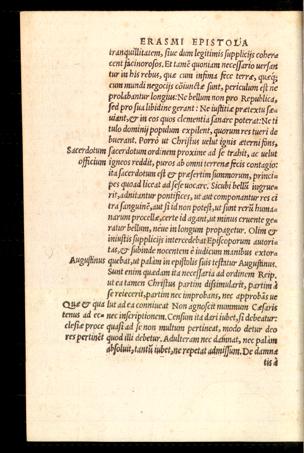 ERASMI EPISTOLA
tranquillitatem, siue dum legitimis supplicijs coherce
cent facinorosos. Et tamē quoniam necessario uersan
tur in his rebus, quæ cum infima fece terræ, quæq;
cum mundi negocijs cōiunctæ sunt, periculum est ne
prolabantur longius: Ne bellum non pro Republica,
sed pro sua libidine gerant: Ne iustitiæ prætextu sæ
uiant, & in eos quos clementia sanare poterat: Ne ti
tulo dominij populum expilent, quorum res tueri de
buerant. Porrò ut Christus uelut ignis æterni fons,
Sacerdotum
officium
sacerdotum ordinem proxime ad se trahit, ac uelut
igneos reddit, puros ab omni terrenæ fecis contagio:
ita sacerdotum est & præsertim summorum, princi
pes quoad licet ad sese uocare. Sicubi bellū ingrue
rit, adnitantur pontifices, ut aut componantur res ci
tra sanguinē, aut si id non potest, ut sunt rerū huma
narum procellæ, certe id agant, ut minus cruente ge
ratur bellum, neue in longum propagetur. Olim &
iniustis supplicijs intercedebat Episcoporum autori
tas, & subinde nocentem è iudicum manibus extor
Augustinus
quebat, ut palam in epistolis suis testatur Augustinus.
Sunt enim quædam ita necessaria ad ordinem Reip.
ut ea tamen Christus partim dissimularit, partim à
se reiecerit, partim nec improbans, nec approbās ue
Quæ & qua
tenus ad ec
clesiæ proce
res pertinēt
lut ad ea conniueat Non agnoscit nummum Cæsaris
nec inscriptionem. Censum ita dari iubet, si debeatur:
quasi ad se non multum pertineat, modo detur deo
quod illi debetur. Adulteram nec damnat, nec palàm
absoluit, tantū iubet, ne repetat admissum. De damna
tis à